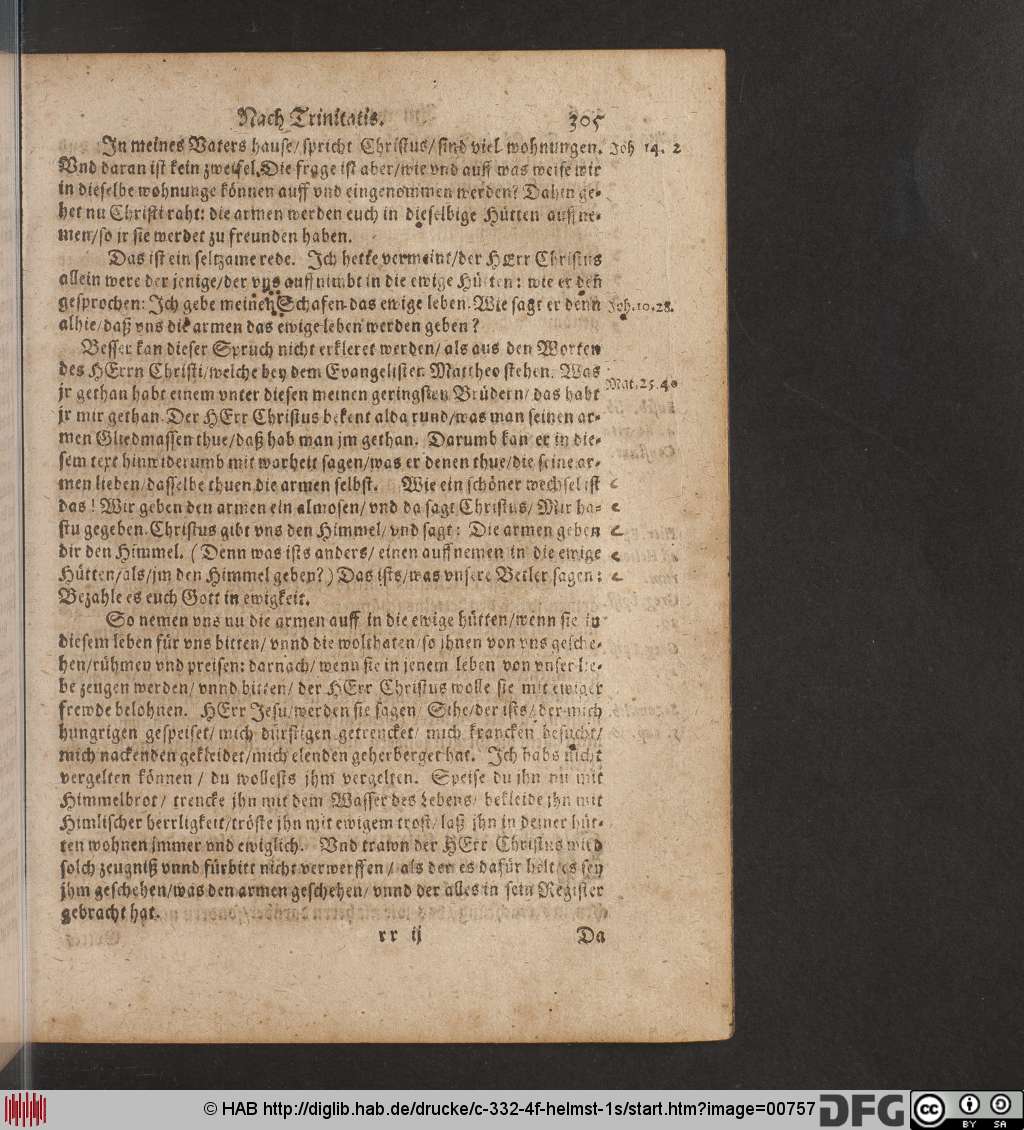 Nach Trinitatis. 305
In meines Vaters hause/ spricht Christus/ sind viel wohnungen. Joh 14. 2
Vnd daran ist kein zweifel. Die frage ist aber/ wie vnd auff was weise wir
in dieselbe wohnunge können auff vnd eingenommen werden? Dahin ge-
het nu Christi raht: die armen werden euch in dieselbige Hütten auffne-
men/ so jr sie werdet zu freunden haben.
Das ist ein seltzame rede. Ich hette vermeint/ der HErr Christus
allein were der jenige/ der vns auffnimbt in die ewige Hütten: wie er den
gesprochen: Ich gebe meinen Schafen das ewige leben. Wie sagt er denn Joh. 10. 28.
alhie/ daß vns die armen das ewige leben werden geben?
Besser kan dieser Spruch nicht erkleret werden/ als aus den Worten
des HErrn Christi/ welche bey dem Evangelisten Mattheo stehen. Was Mat. 25. 40
jr gethan habt einem vnter diesen meinen geringsten Brüdern/ das habt
jr mir gethan. Der HErr Christus bekent alda rund/ was man seinen ar-
men Gliedmassen thue/ daß hab man jm gethan. Darumb kan er in die-
sem text hinwiderumb mit warheit sagen/ was er denen thue/ die seine ar-
men lieben/ dasselbe thuen die armen selbst. Wie ein schöner wechsel ist
das! Wir geben den armen ein almosen/ vnd da sagt Christus/ Mir ha-
stu gegeben. Christus gibt vns den Himmel/ vnd sagt: Die armen geben
dir den Himmel. (Denn was ists anders/ einen auffnemen in die ewige
Hütten/ als/ jm den Himmel geben?) Das ists/ was vnsere Betler sagen:
Bezahle es euch Gott in ewigkeit.
So nemen vns nu die armen auff in die ewige hütten/ wenn sie in
diesem leben für vns bitten/ vnnd die wolthaten/ so ihnen von vns gesche-
hen/ rühmen vnd preisen: darnach/ wenn sie in jenem leben von vnser lie-
be zeugen werden/ vnnd bitten/ der HErr Christus wolle sie mit ewiger
frewde belohnen. HErr Jesu/ werden sie sagen/ Sihe/ der ists/ der mich
hungrigen gespeiset/ mich dürstigen getrencket/ mich krancken besucht/
mich nackenden gekleidet/ mich elenden geherberget hat. Ich habs nicht
vergelten können/ du wollests jhm vergelten. Speise du jhn nu mit
Himmelbrot/ trencke jhn mit dem Wasser des Lebens/ bekleide jhn mit
Himlischer herrligkeit/ tröste jhn mit ewigem trost/ laß jhn in deiner hüt-
ten wohnen jmmer vnd ewiglich. Vnd trawn der HErr Christus wird
solch zeugniß vnnd fürbitt nicht verwerffen/ als der es dafür helt/ es sey
jhm geschehen/ was den armen geschehen/ vnnd der alles in sein Register
gebracht hat.
rr ij Da
© HAB http://diglib.hab.de/drucke/c-332-4f-helmst-1s/start.htm?image=00757
DFG
cc BY SA